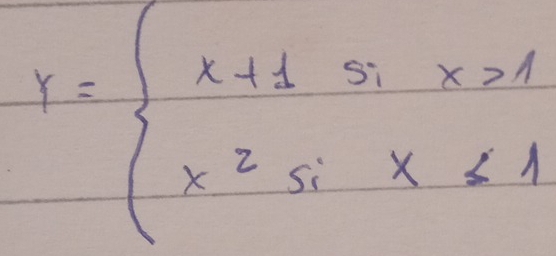 Y = { x + 1 si x > 1
x² si x ≤ 1